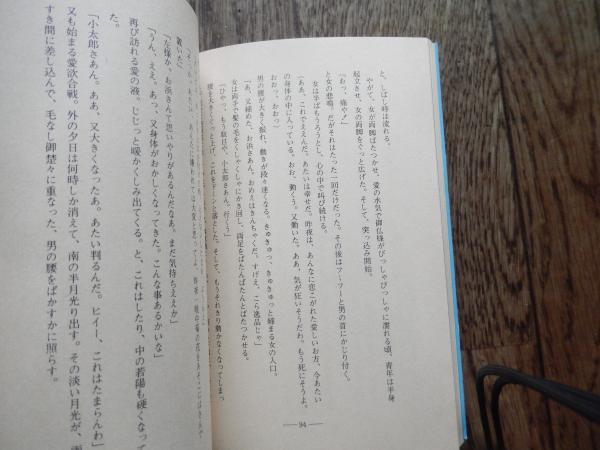 と、しばし時は流れる。
やがて、女が両脚ばたつかせ、愛の水気で御仏様がびっしゃびっしゃに濡れる頃、青年は半身
起立させ、女の両脚をぐっと広げた。そして、突っ込み開始。
「おっ、痛や！」
と女の悲鳴。だがそれはたった一回だけだった。その後はフーフーと男の首にかじり付く。
女は半ばもうろうとし、心の中で叫び続ける。
（ああ、これでええんだ。あたいは幸せだ。昨夜は、あんなに恋こがれた愛しいお方、今あたい
の身体の中に入っている。おお、動くう。又動いた。ああ、気が狂いそうだわ。もう死にそうよ。
おおっ、おおっ）
男の腰が大きく振れ、動きが段々速くなる。きゅきゅっ、きゅきゅっと締まる女の入口。
「あ、又締めた。お浜さん、おめえはきんちゃくだ。すげえ、こら逸品じゃ」
女は両手で髪の毛をくしゃくしゃにかき回し、両足をばたんばたんとばたつかせる。
「ひやっ、もう駄目や、小太郎さあん、行くう」
腰を大きくどっと上げ、これをドーンと落とした。そして、もうそれきり動かなくなってしまっ
— 94 —
た。
置いた、
「左様か、お浜さんて思いやりがあるんだなあ。まだ気持ちええか」
「うん、ええ、あっ、又身体がおかしくなってきた。こんな事あるかいな」
再び訪れる愛の液。じじっと暖かくしみ出てくる。と、これはしたり、中の若陽も硬くなって
た。
「小太郎さあん。ああ、又大きくなったあ。あたい判るんだ。ヒイー、これはたまらんわ」
又も始まる愛欲合戦。外の夕日は何時しか消えて、南の半月光り出す。その淡い月光が、雨
すき間に差し込んで、毛なし御楚々に重なった、男の腰をばかすかに照らす。